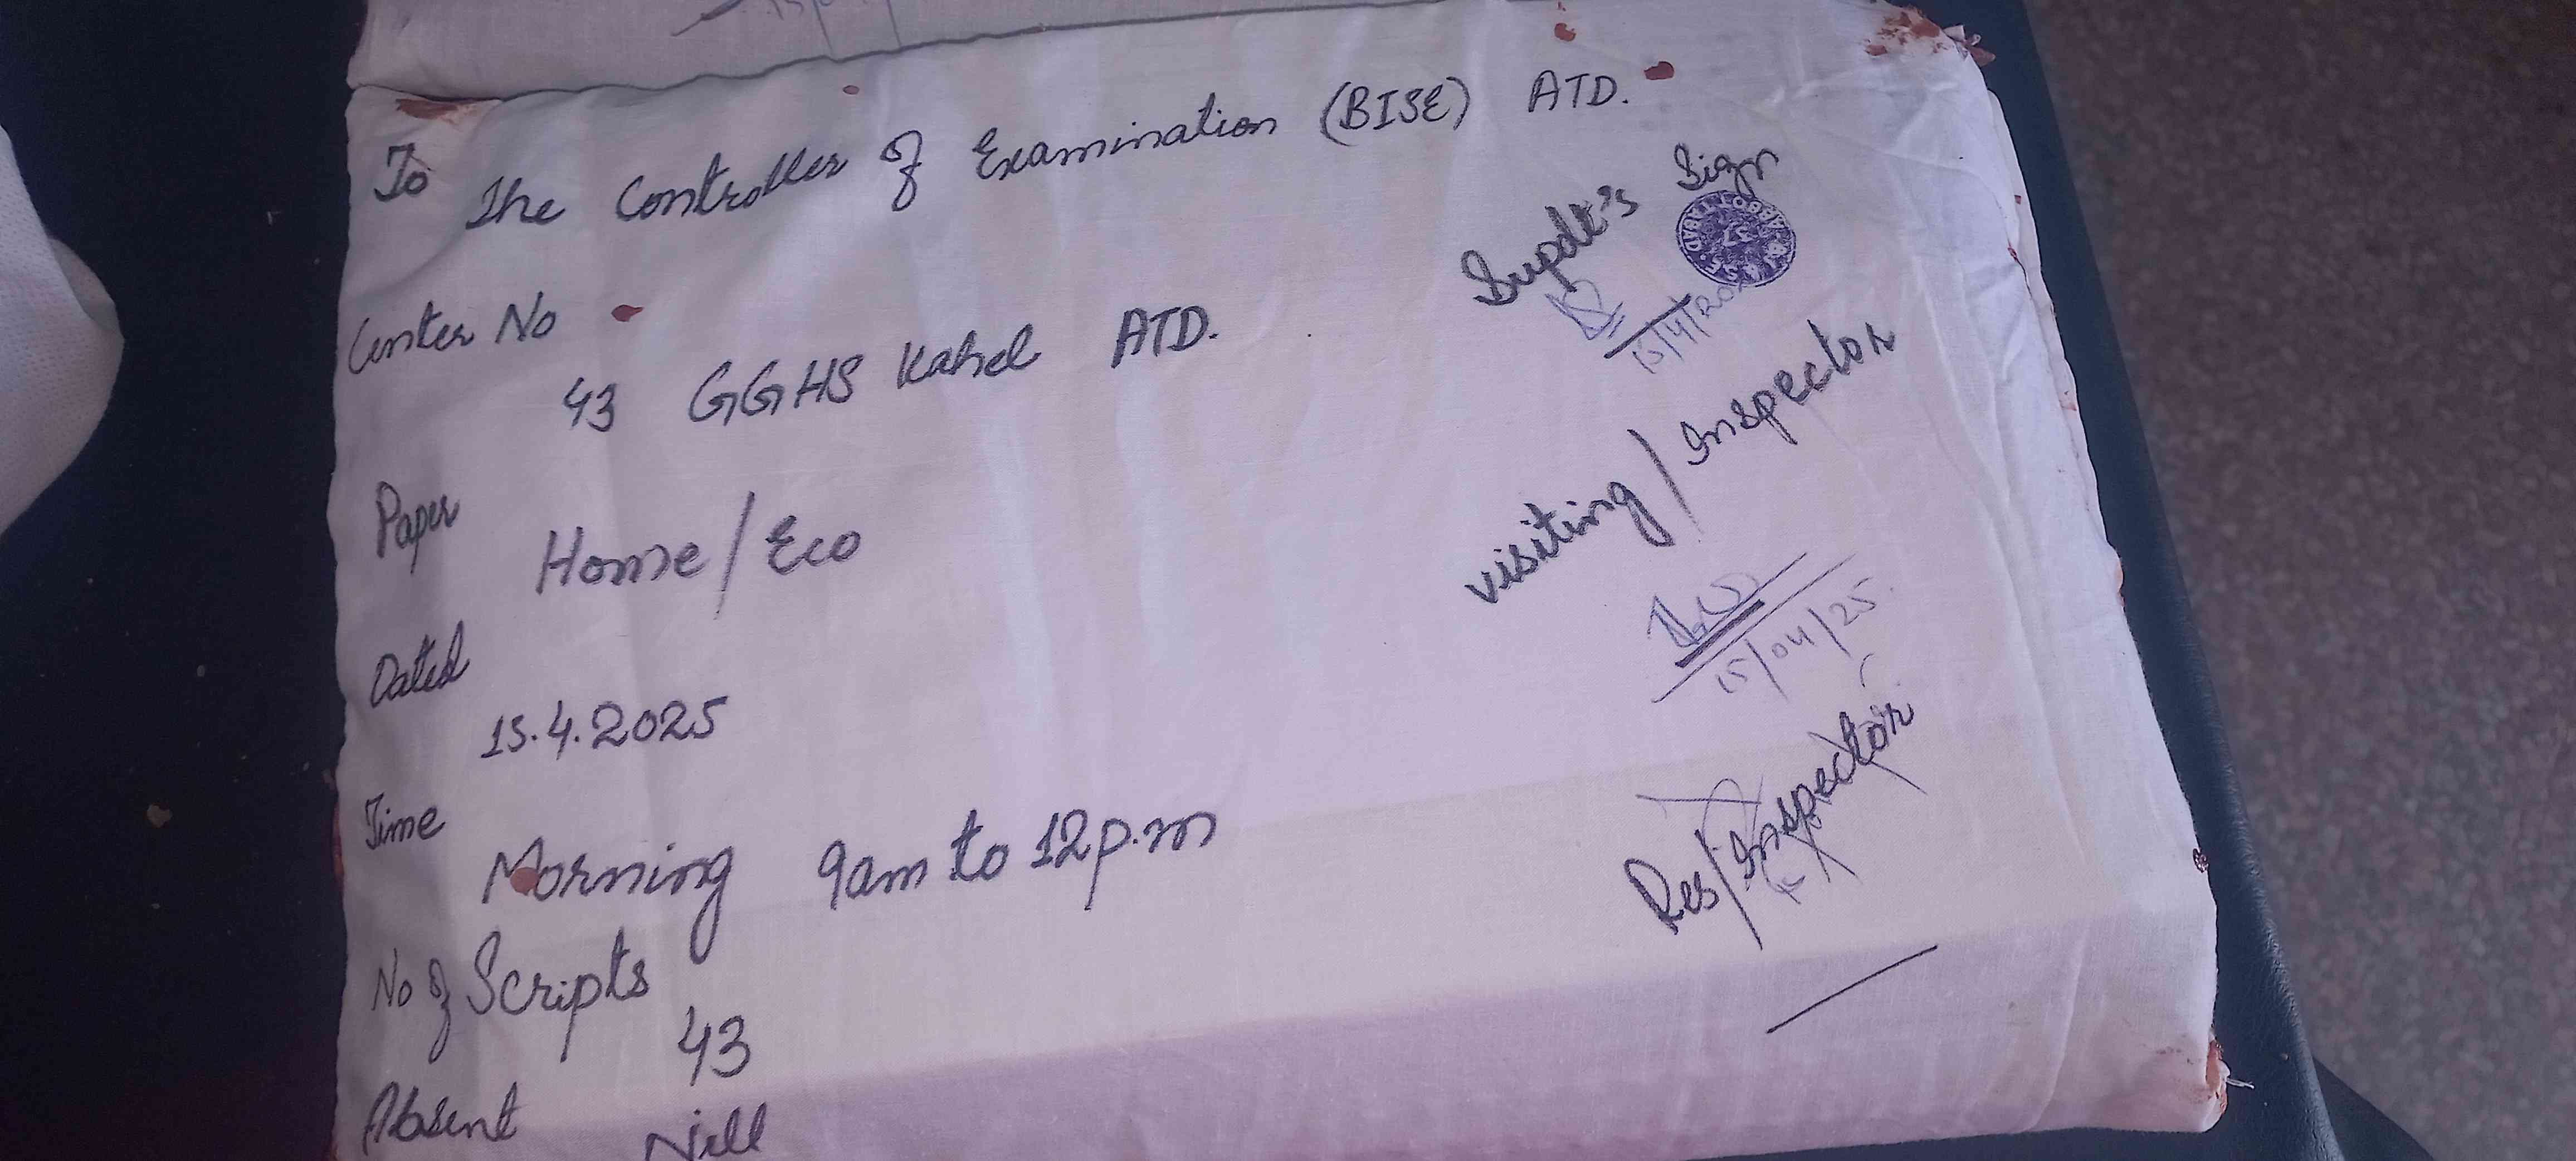 To
The Controller of Examination (BISE) ATD.
Center No
43 GGHS Kahal ATD.
Paper
Home/Eco
Dated
15.4.2025
Time
Morning 9am to 12p.m
No of Scripts
43
Absent
Nill
Supdt's Sign
B.I.S.E. ABBOTTABAD
37
15/4/20
visiting/Inspector
15/04/25
Res/Inspector